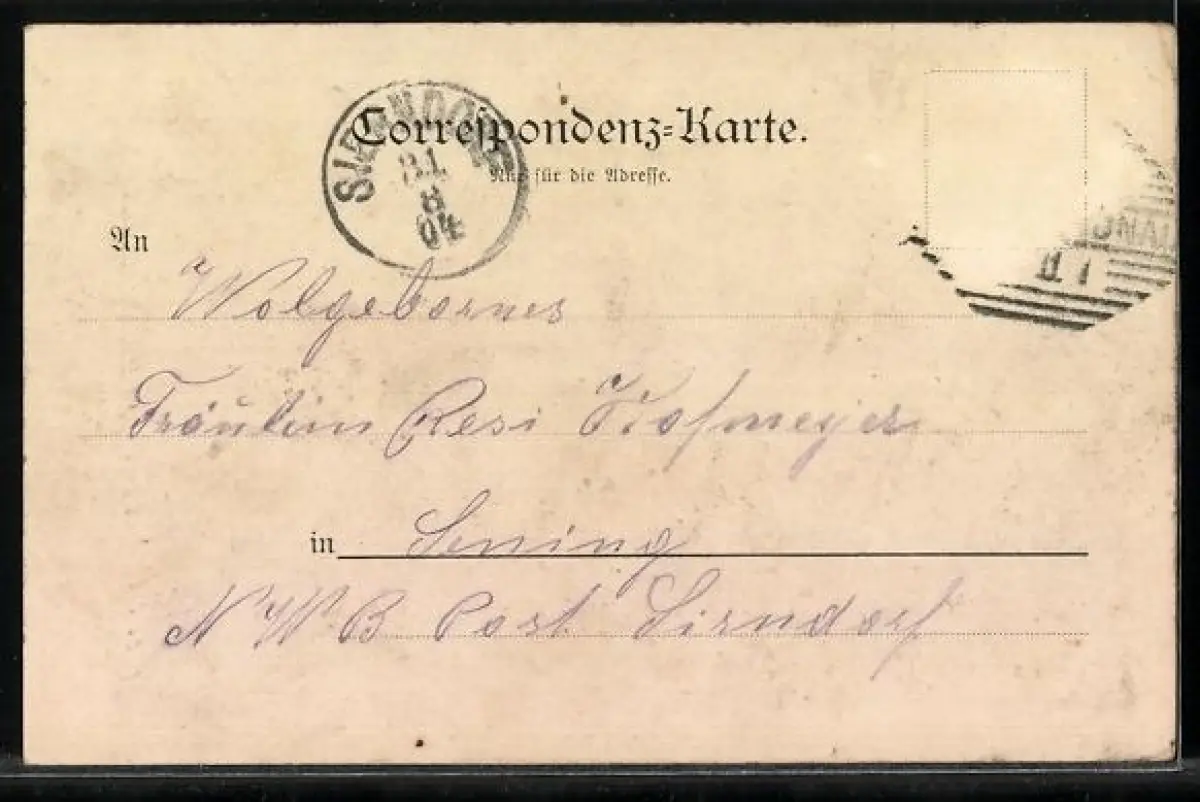 Correspondenz-Karte.
Nur für die Adresse.
SIERNDORF
31
8
04
An
Wolgebornes
Fräulein Resi Hofmeyer
in Senning
N W B Post Sirndorf